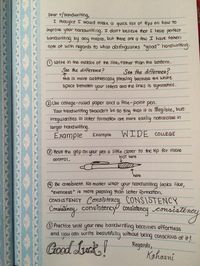 Dear r/handwriting,
I thought I would make a quick list of tips on how to
improve your handwriting. I don't believe that I have perfect
handwriting by any means, but these are a few I have taken
note of with regards to what distinguishes "good" handwriting.
① Write in the middle of the line, rather than the bottom.
See the difference? See the difference?
This is more aesthetically pleasing because the white
space between your letters and the lines is symmetric.
② Use college-ruled paper and a fine-point pen.
Your handwriting shouldn't be so tiny that it is illegible, but
irregularities in letter formation are more easily noticeable in
larger handwriting.
Example Example WIDE COLLEGE
③ Have the grip on your pen a little closer to the tip for more
control. not here
here
④ Be consistent. No matter what your handwriting looks like,
"neatness" is more pleasing than letter formation.
CONSISTENCY Consistency CONSISTENCY
Consistency consistency consistency consistency
⑤ Practice until your new handwriting becomes effortless
and you can write beautifully without being conscious of it!
Good Luck! Regards,